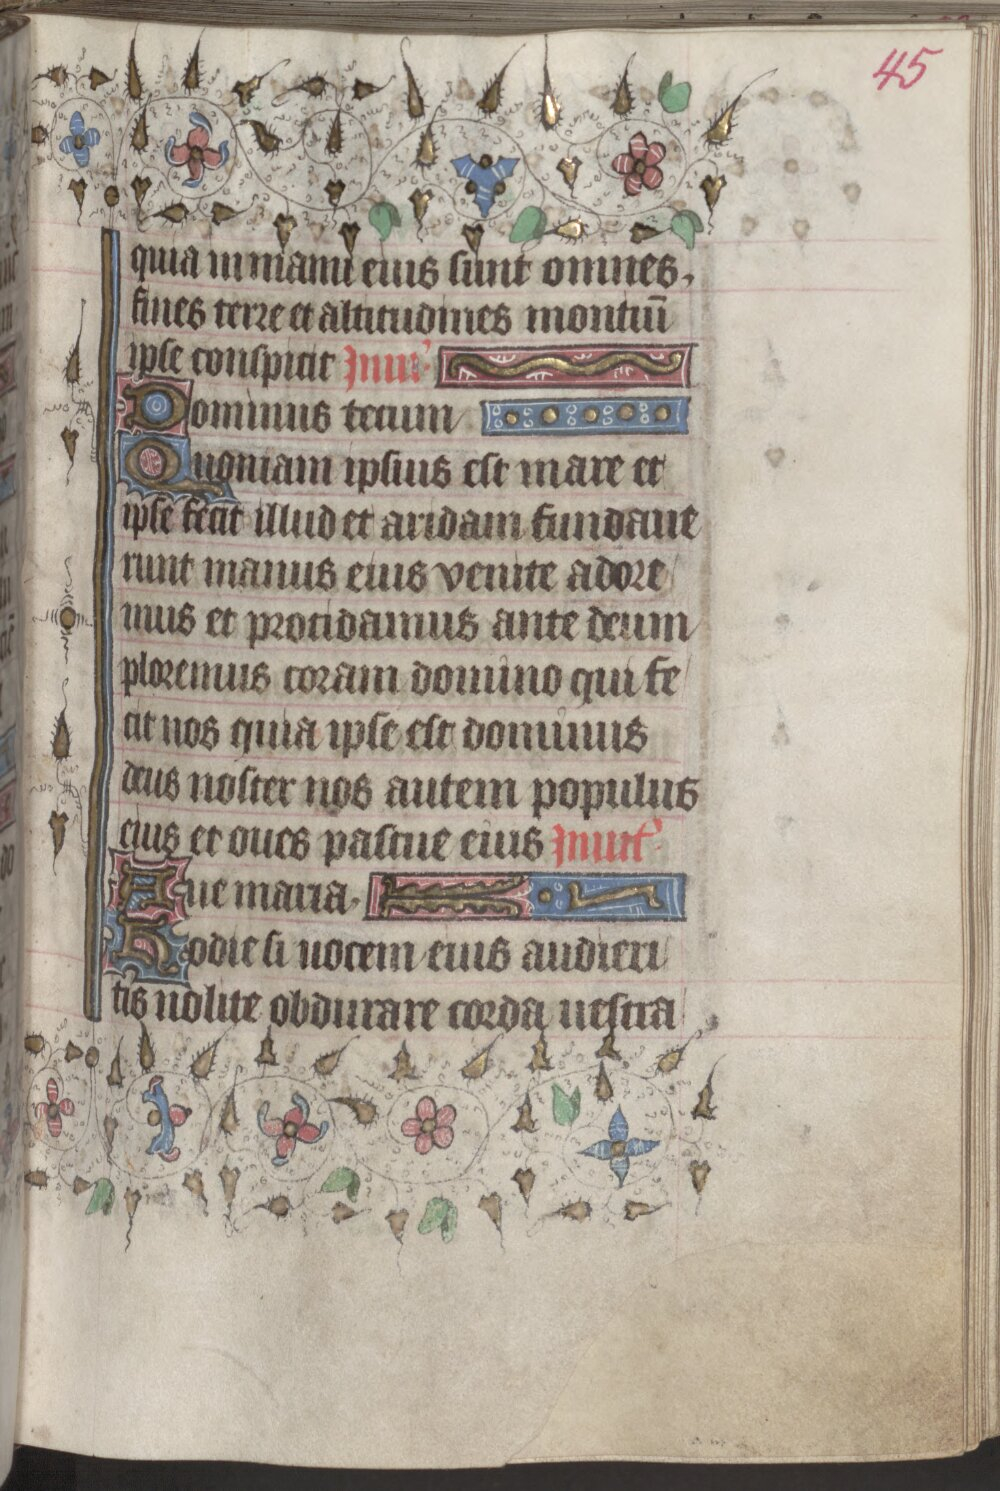 45
quia in manu eius sunt omnes,
fines terre et altitudines montiū
ipse conspicit Inuit'
Dominus tecum
Quoniam ipsius est mare et
ipse fecit illud et aridam fundaue
runt manus eius venite adore
mus et procidamus ante deum
ploremus coram domino qui fe
cit nos quia ipse est dominus
deus noster nos autem populus
eius et oues pascue eius Inuit'
Aue maria.
Hodie si uocem eius audieri
tis nolite obdurare corda uestra